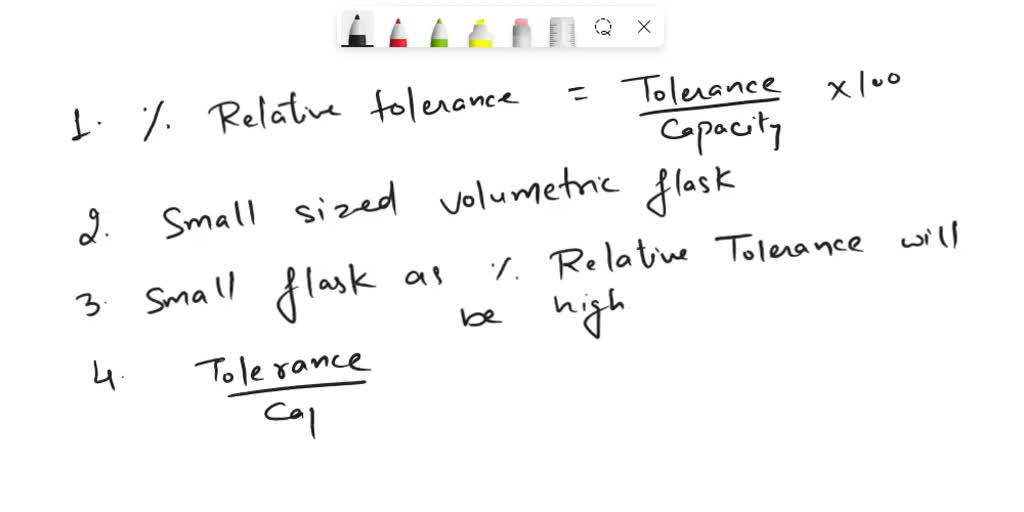 1. % Relative tolerance = Tolerance / Capacity x100
2. Small sized volumetric flask
3. Small flask as % Relative Tolerance will
be high
4. Tolerance / Cap